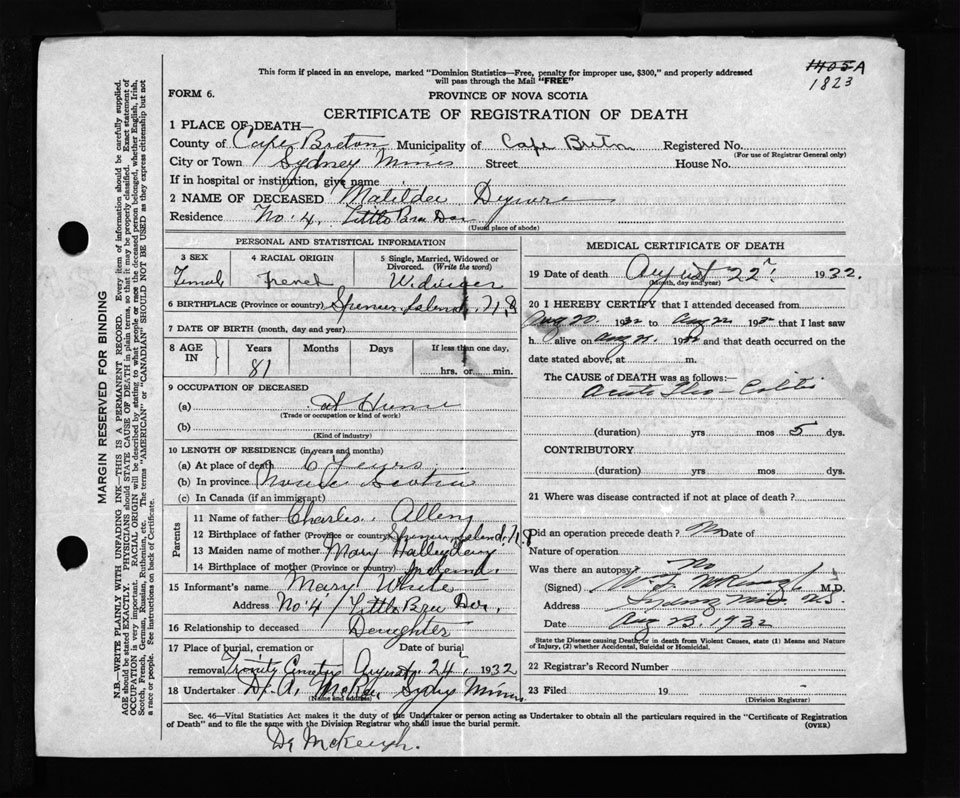 1405A
1823
This form if placed in an envelope, marked "Dominion Statistics—Free, penalty for improper use, $300," and properly addressed
will pass through the Mail "FREE"
FORM 6.
PROVINCE OF NOVA SCOTIA
CERTIFICATE OF REGISTRATION OF DEATH
1 PLACE OF DEATH—
County of Cape Breton Municipality of Cape Breton Registered No.
(For use of Registrar General only)
City or Town Sydney Mines Street House No.
If in hospital or institution, give name
2 NAME OF DECEASED Matilda
Residence No. 4, Little Bra Dor
(Usual place of abode)
PERSONAL AND STATISTICAL INFORMATION
3 SEX 4 RACIAL ORIGIN 5 Single, Married, Widowed or Divorced. (Write the word)
Female French
6 BIRTHPLACE (Province or country) Spencer Island, N.S
7 DATE OF BIRTH (month, day and year)
8 AGE IN Years Months Days If less than one day,
81 hrs. or min.
9 OCCUPATION OF DECEASED
(a) at Home
(Trade or occupation or kind of work)
(b)
(Kind of industry)
10 LENGTH OF RESIDENCE (in years and months)
(a) At place of death 6 Years
(b) In province Nova Scotia
(c) In Canada (if an immigrant)
Parents
11 Name of father Charles Allen
12 Birthplace of father (Province or country) Spencer Island, N.S
13 Maiden name of mother Mary
14 Birthplace of mother (Province or country)
15 Informant's name Mary White
Address No 4 Little Bra Dor.
16 Relationship to deceased Daughter
17 Place of burial, cremation or removal Date of burial
Trinity Cemetery August 24 1932
18 Undertaker A. McRae Sydney Mines
(Name and address)
MEDICAL CERTIFICATE OF DEATH
19 Date of death August 22 1932.
(Month, day and year)
20 I HEREBY CERTIFY that I attended deceased from
Aug 20. 1932 to Aug 22 1932 that I last saw
h alive on Aug 21 193 and that death occurred on the
date stated above, at m.
The CAUSE of DEATH was as follows:—
Acute Ileo-Colitis
(duration) yrs mos 5 dys.
CONTRIBUTORY
(duration) yrs mos dys.
21 Where was disease contracted if not at place of death?
Did an operation precede death? No Date of
Nature of operation
Was there an autopsy No
(Signed) McKeough M.D.
Address Sydney Mines N.S.
Date Aug 23. 1932
State the Disease causing Death, or in death from Violent Causes, state (1) Means and Nature of Injury, (2) whether Accidental, Suicidal or Homicidal.
22 Registrar's Record Number
23 Filed 19
(Division Registrar)
Sec. 46—Vital Statistics Act makes it the duty of the Undertaker or person acting as Undertaker to obtain all the particulars required in the "Certificate of Registration
of Death" and to file the same with the Division Registrar who shall issue the burial permit. (OVER)
Dr McKeugh.
MARGIN RESERVED FOR BINDING
N.B.—WRITE PLAINLY WITH UNFADING INK—THIS IS A PERMANENT RECORD. Every item of information should be carefully supplied.
AGE should be stated EXACTLY. PHYSICIANS should STATE CAUSE OF DEATH in plain terms, so that it may be properly classified. Exact statement of
OCCUPATION is very important. RACIAL ORIGIN will be described by stating to what people or race the deceased person belonged, whether English, Irish,
Scotch, French, German, Russian, Ruthenian, etc. The terms "AMERICAN" or "CANADIAN" SHOULD NOT BE USED as they express citizenship but not
a race or people. See instructions on back of Certificate.